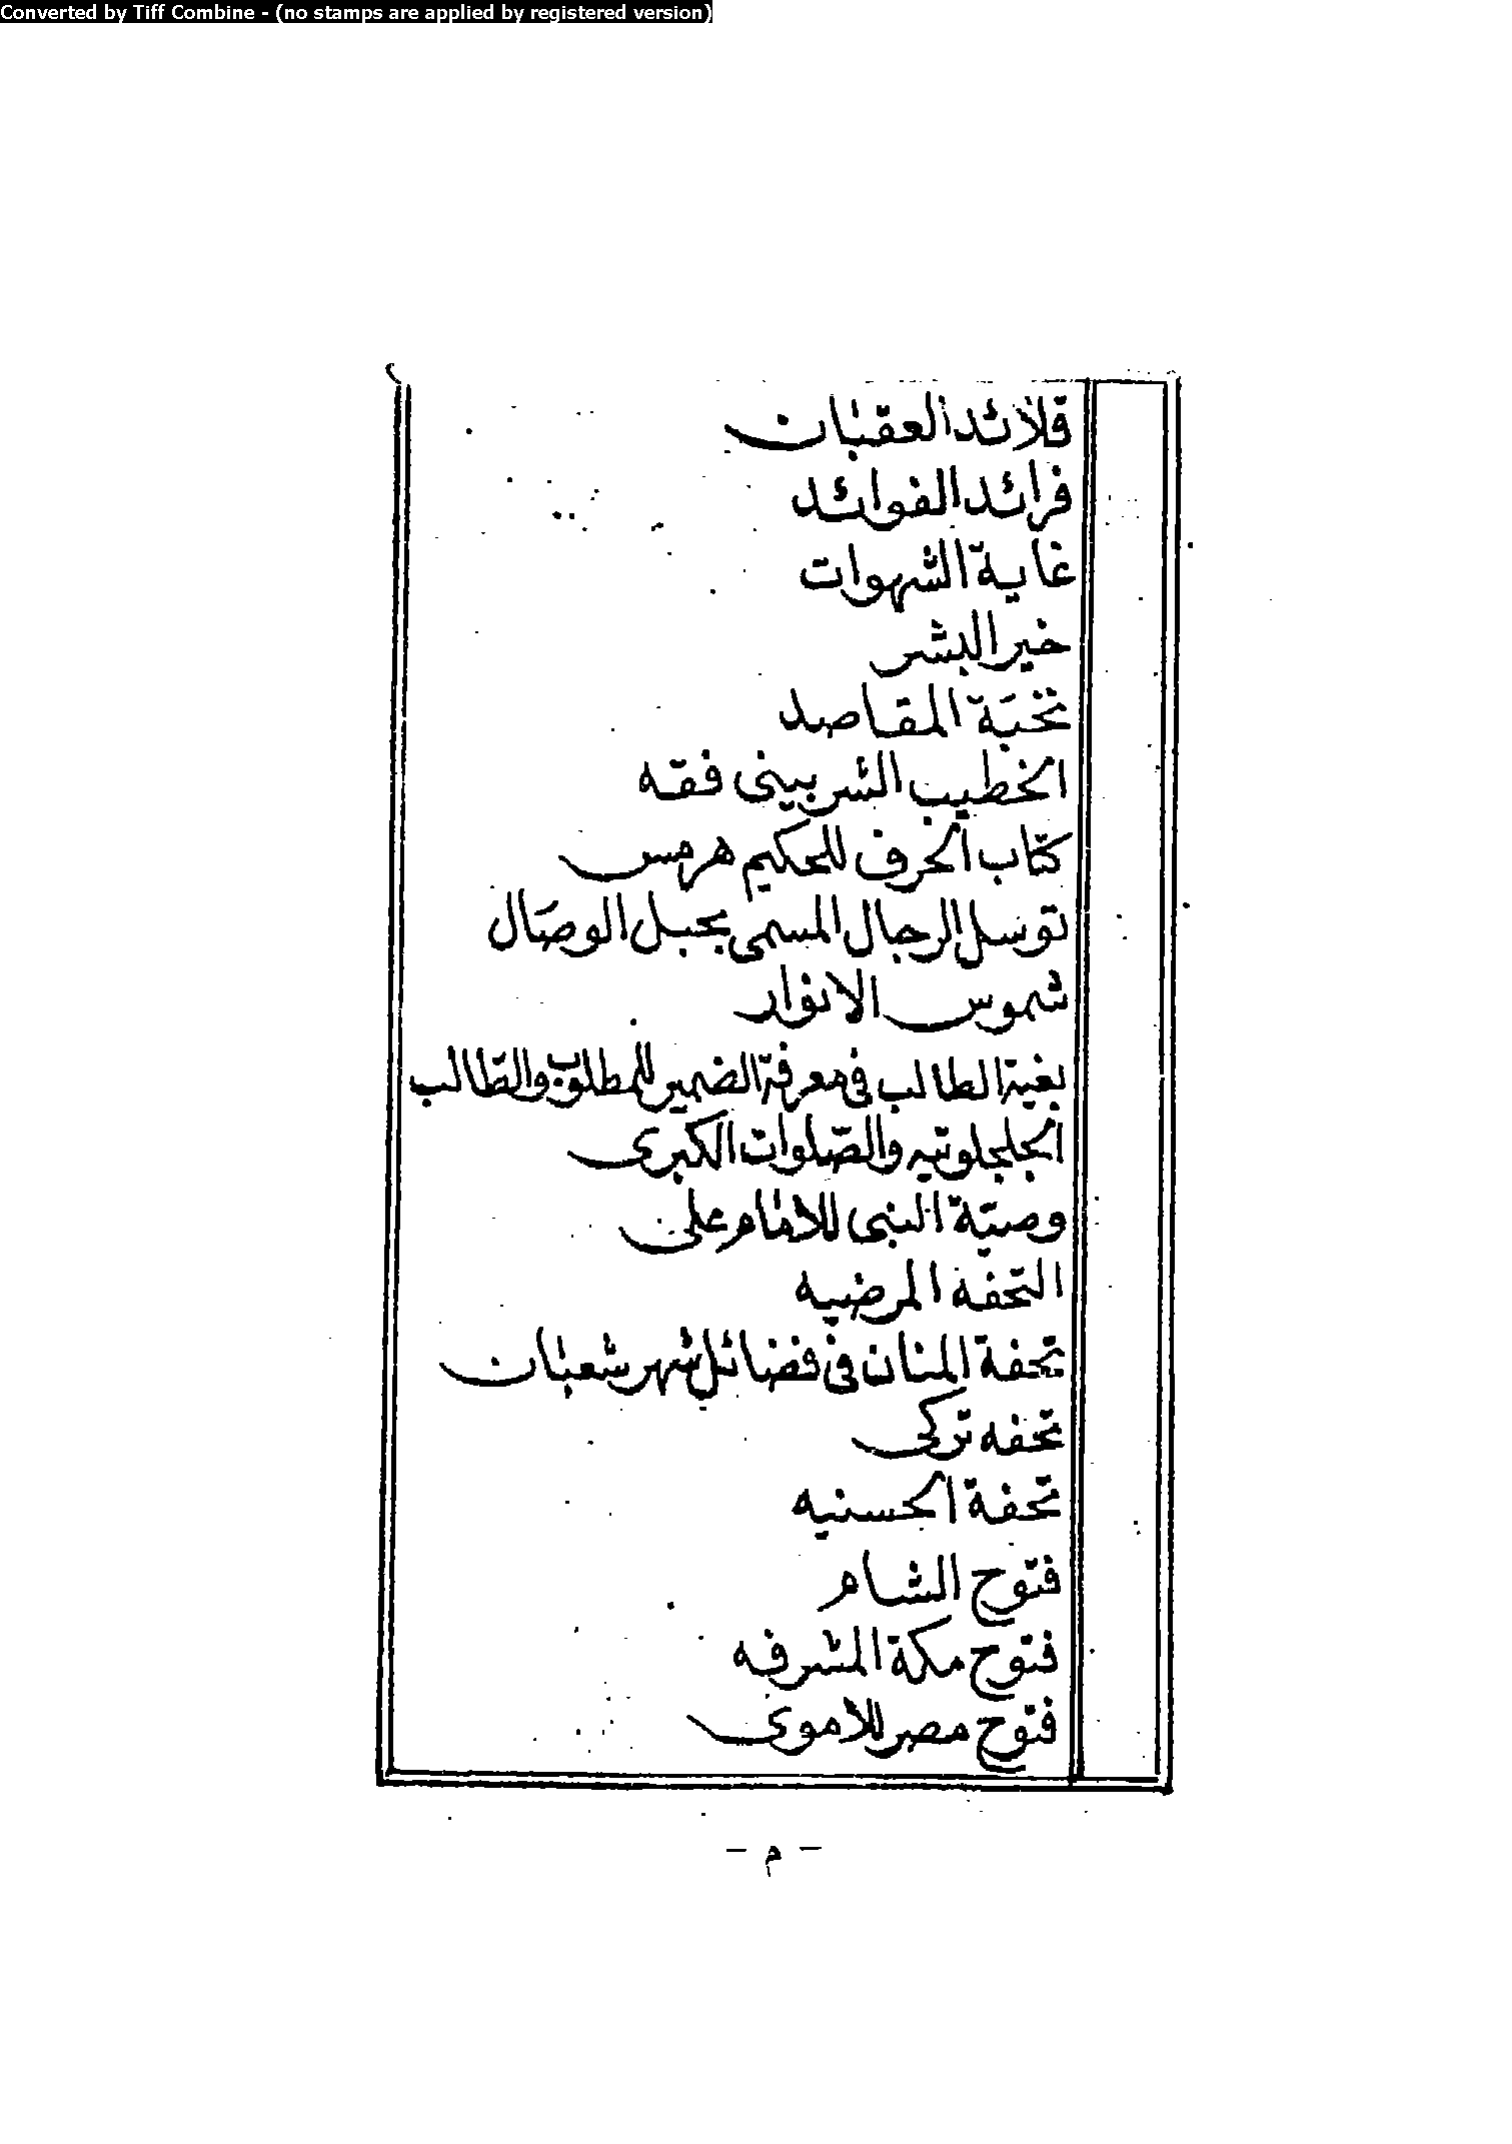 Converted by Tiff Combine - (no stamps are applied by registered version)
قلائد العقبان
فرائد الفوائد
غاية الشهوات
خير البشر
نخبة المقاصد
الخطيب الشربينى فقه
كتاب الحرف للحكيم هرمس
توسل الرجال المسمى بحبل الوصال
شموس الانوار
بغية الطالب فى معرفة الضمير للمطلوب والطالب
الجلجلوتيه والصلوات الكبرى
وصية النبى للامام على
التحفه المرضيه
تحفة المنان فى فضائل شهر شعبان
تحفه تركى
تحفة الحسنيه
فتوح الشام
فتوح مكة المشرفه
فتوح مصر للاموى
- م -